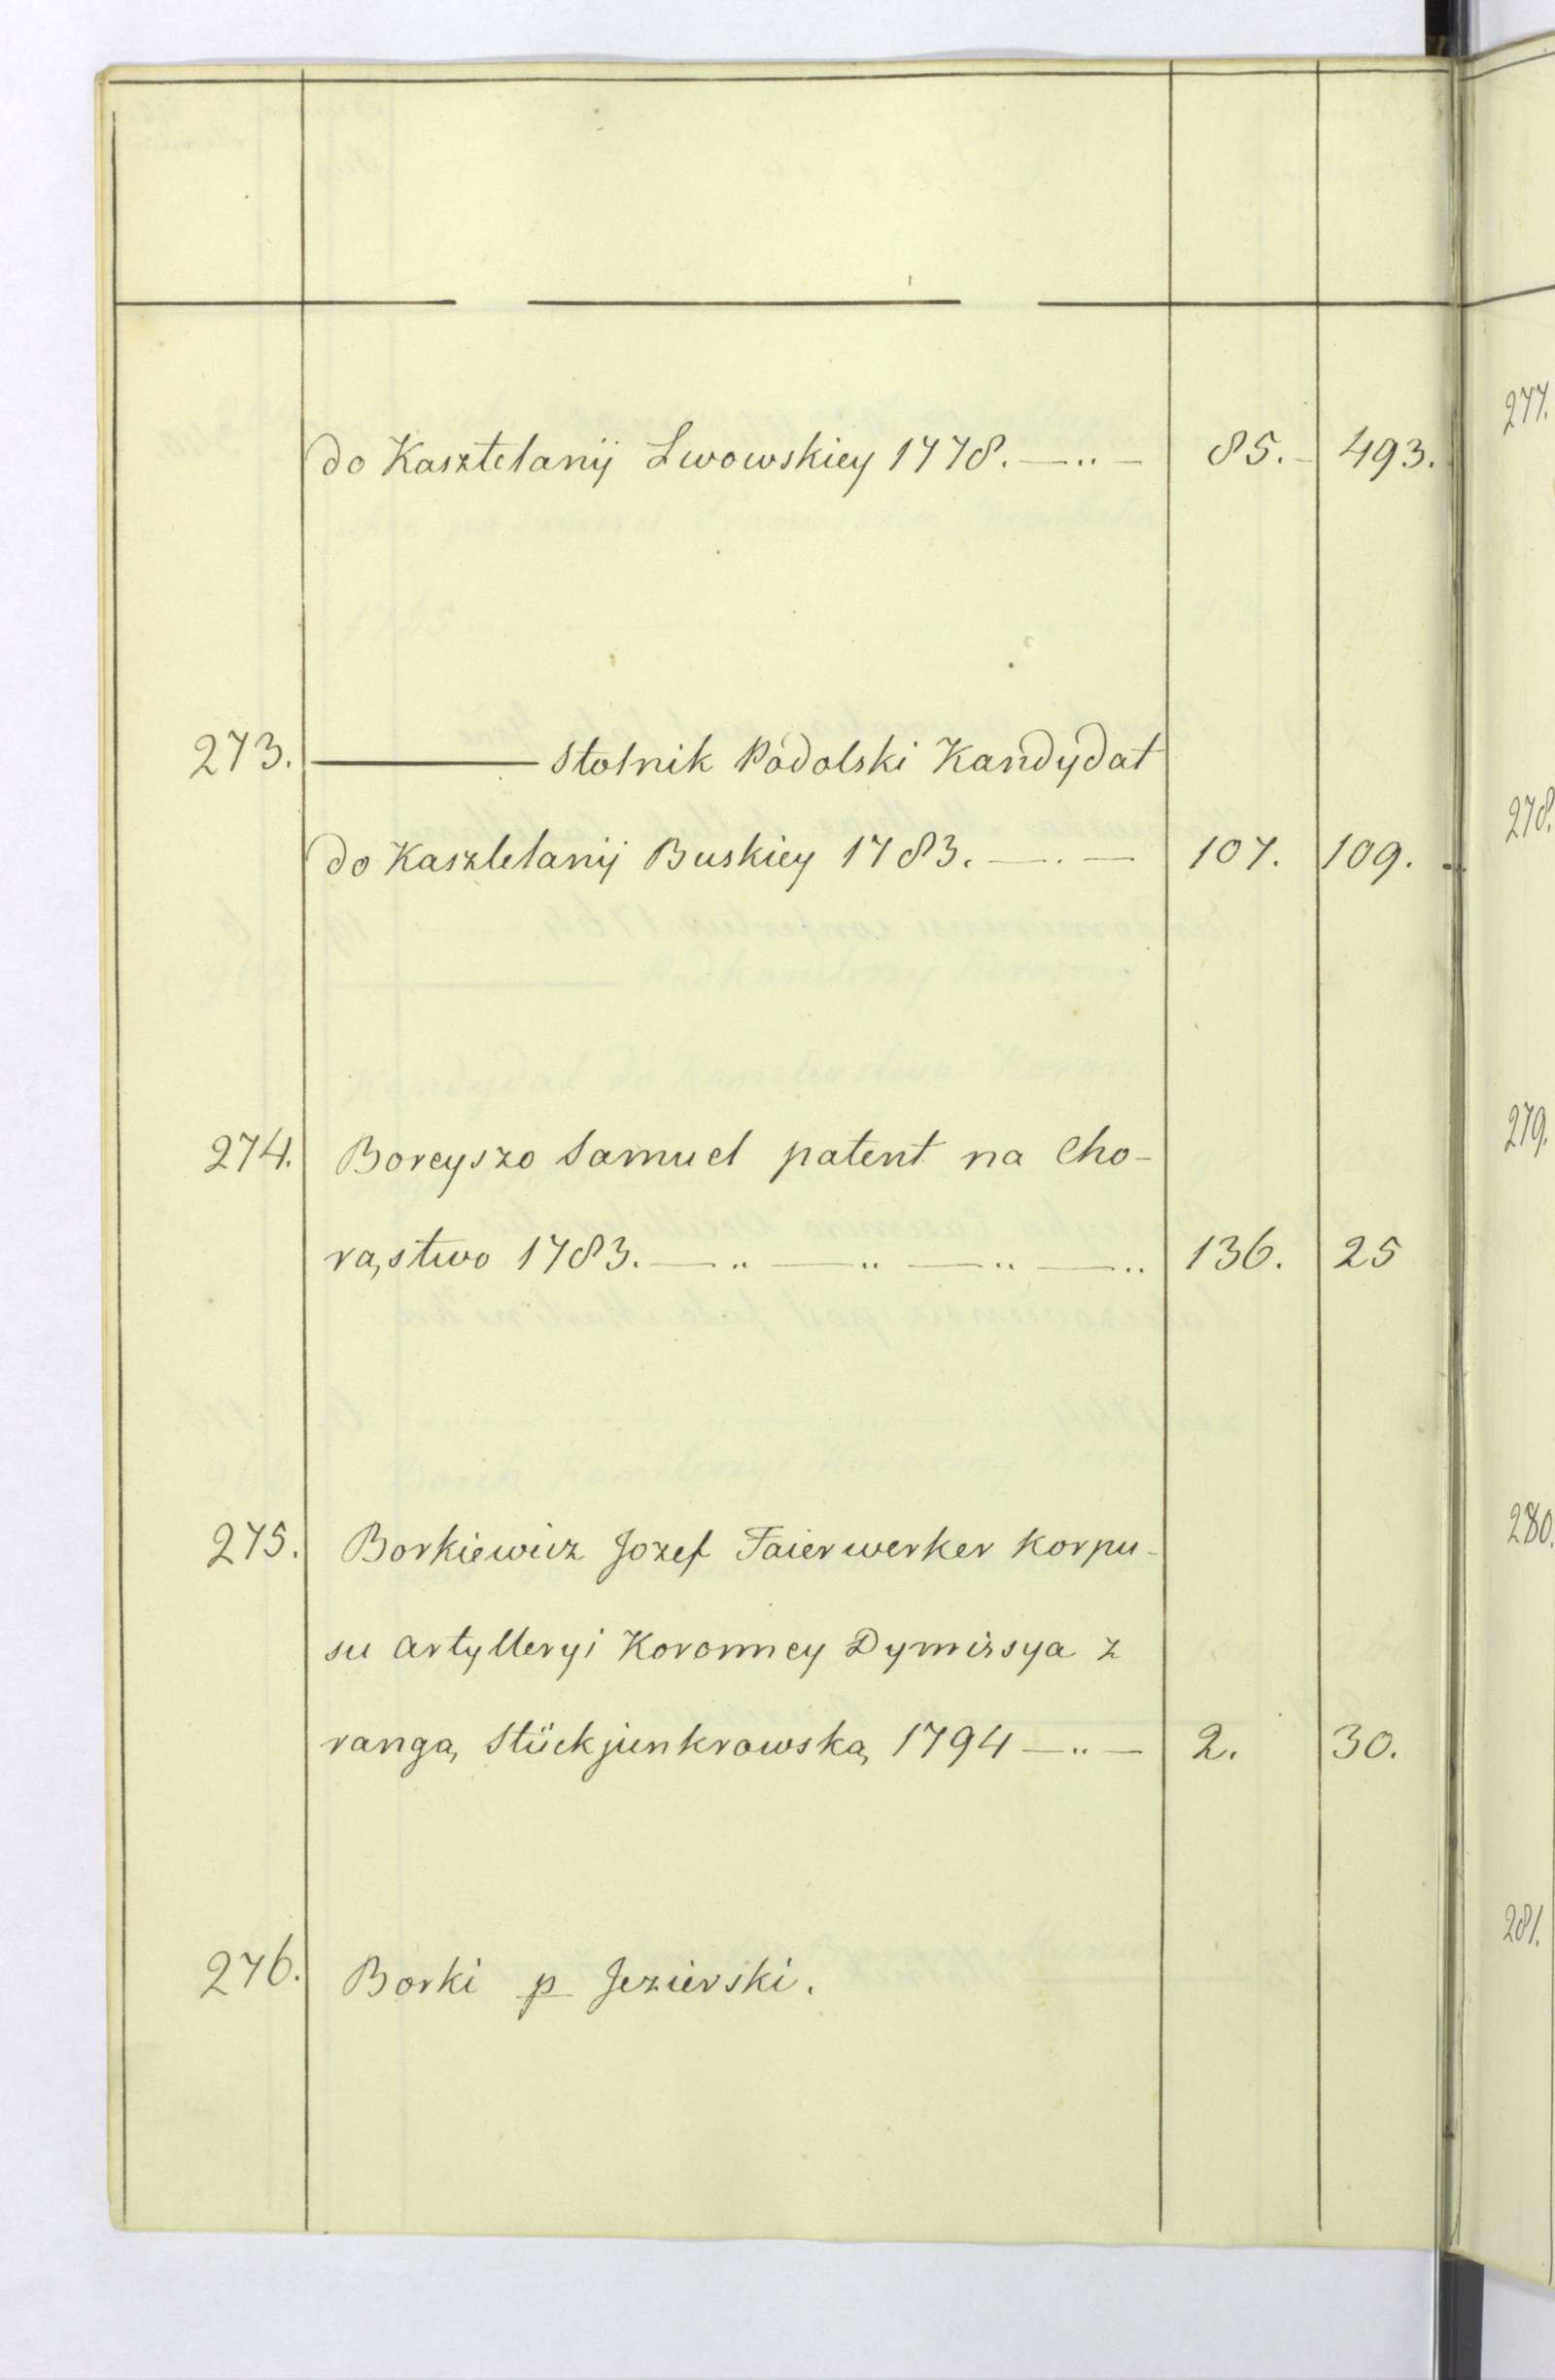 do Kasztelanij Lwowskiey 1778. — .. — 85. - 493.
273. ——— Stolnik Podolski Kandydat
do Kasztelanij Buskiey 1783. — . — 107. 109.
274. Boreyszo Samuel patent na Cho-
rąstwo 1783. — .. — .. — .. — .. 136. 25
275. Borkiewicz Jozef Faierwerker Korpu-
su Artylleryi Koronney Dymissya z
rangą Stückjunkrowską 1794 — .. — 2. 30.
276. Borki p Jezierski.
277.
278.
279.
280.
281.